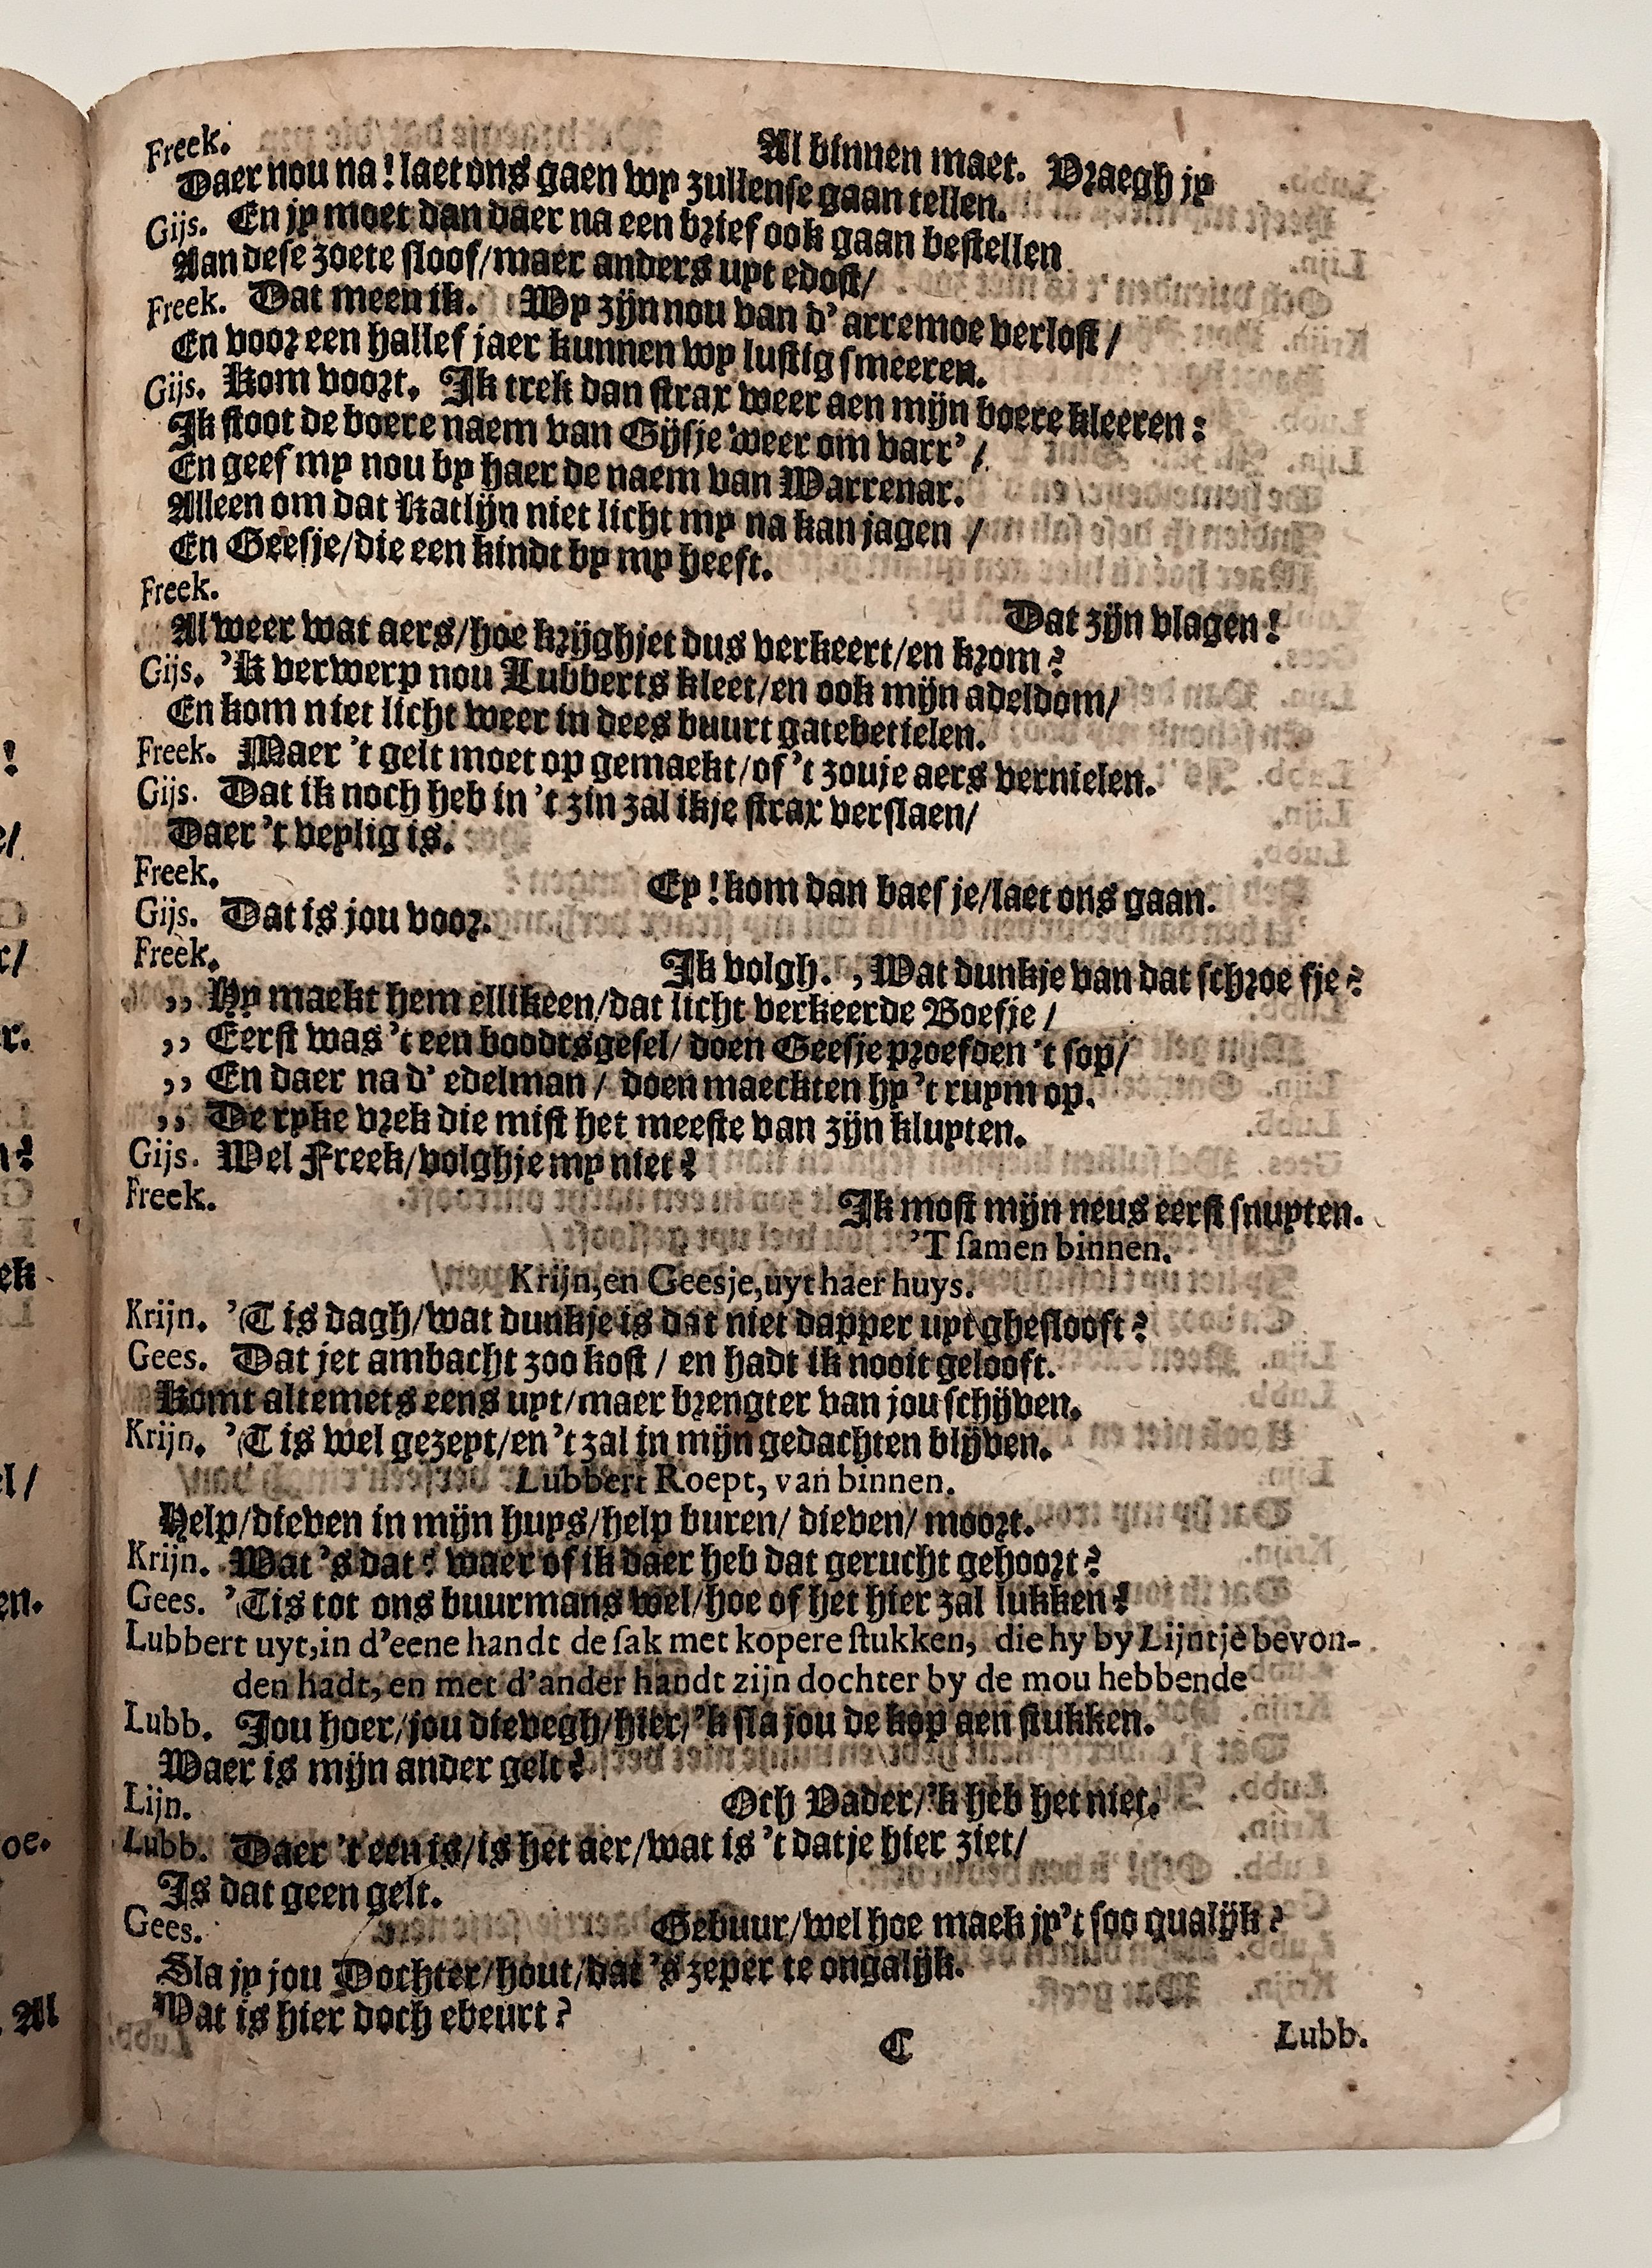 Freek. Al binnen maet. Vraegh jy
Daer nou na! laet ons gaen wy zullense gaan tellen.
Gijs. En jy moet dan daer na een brief ook gaan bestellen
Aan dese zoete sloof/maer anders uyt edost/
Freek. Dat meen ik. Wy zijn nou van d' arremoe verlost /
En voor een hallef jaer kunnen wy lustig smeeren.
Gijs. Kom voort. Ik trek dan strax weer aen mijn boere kleeren:
Ik stoot de boere naem van Gijsje weer om varr' /
En geef my nou by haer de naem van Warrenar.
Alleen om dat Katlijn niet licht my na kan jagen /
En Geesje/die een kindt by my heeft.
Freek. Dat zijn vlagen!
Al weer wat aers/hoe krijghjet dus verkeert/en krom?
Gijs. 'k verwerp nou Lubberts kleet/en ook mijn adeldom/
En kom niet licht weer in dees buurt gatebetielen.
Freek. Maer 't gelt moet op gemaekt/of 't zouje aers vernielen.
Gijs. Dat ik noch heb in 't zin zal ikje strax verslaen/
Daer 't veylig is.
Freek. Ey! kom dan baesje/laet ons gaan.
Gijs. Dat is jou voor.
Freek. Ik volgh. ,, Wat dunkje van dat schroefje?
,, Hy maekt hem ellikeen/dat licht verkeerde Boefje /
,, Eerst was 't een boodtsgesel/ doen Geesje proefden 't sop/
,, En daer na d' edelman / doen maeckten hy 't ruym op.
,, De ryke vrek die mist het meeste van zijn kluyten.
Gijs. Wel Freek/volghje my niet?
Freek. Ik most mijn neus eerst snuyten.
'T samen binnen.
Krijn, en Geesje, uyt haer huys.
Krijn. 'T is dagh/wat dunkje is dat niet dapper uyt gheslooft?
Gees. Dat jet ambacht zoo kost / en hadt ik nooit gelooft.
Komt altemets eens uyt/maer brengter van jou schijven.
Krijn. 'T is wel gezeyt/en 't zal in mijn gedachten blijven.
Lubbert Roept, van binnen.
Help/dieven in mijn huys/help buren/ dieven/ moort.
Krijn. Wat 's dat? waer of ik daer heb dat gerucht gehoort?
Gees. 'Tis tot ons buurmans wel/hoe of het hier zal lukken!
Lubbert uyt, in d'eene handt de sak met kopere stukken, die hy by Lijntje bevon-
den hadt, en met d'ander handt zijn dochter by de mou hebbende
Lubb. Jou hoer/jou dievegh/hier/'k sla jou de kop aen stukken.
Waer is mijn ander gelt?
Lijn. Och Vader/'k heb het niet.
Lubb. Daer 't een is/is het aer/wat is 't datje hier ziet/
Is dat geen gelt.
Gees. Gebuur/wel hoe maek jy't soo qualijk?
Sla jy jou Dochter/hout/dat 's zeper te ongalijk.
Wat is hier doch ebeurt?
C Lubb.